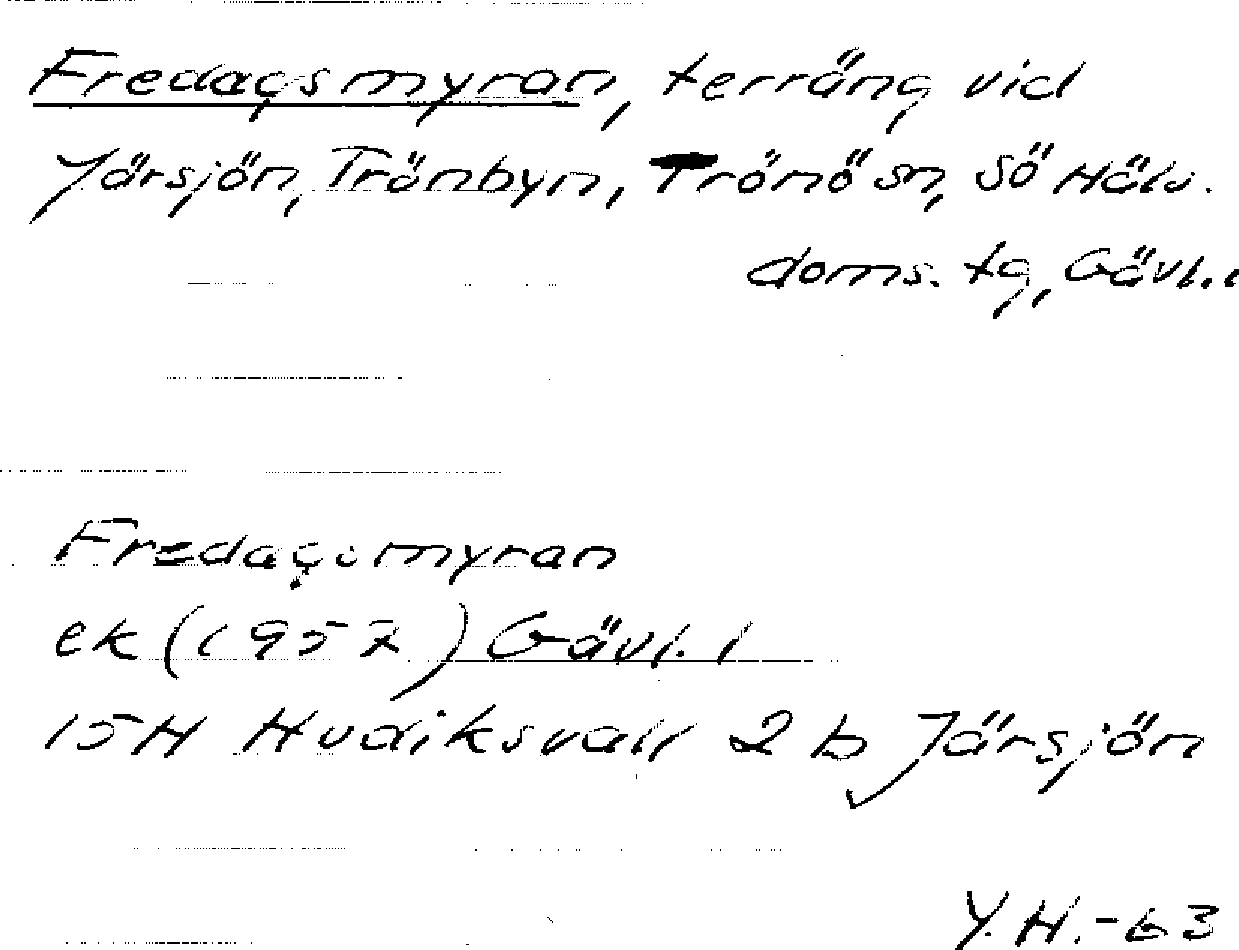 Fredagsmyran, terräng vid
Järsjön, Trönbyn, Trönö sn, Sö Häls.
doms. tg, Gävl. l
Fredagsmyran
ek (1957) Gävl. l
15H Hudiksvall 2 b Järsjön
Y.H.-63